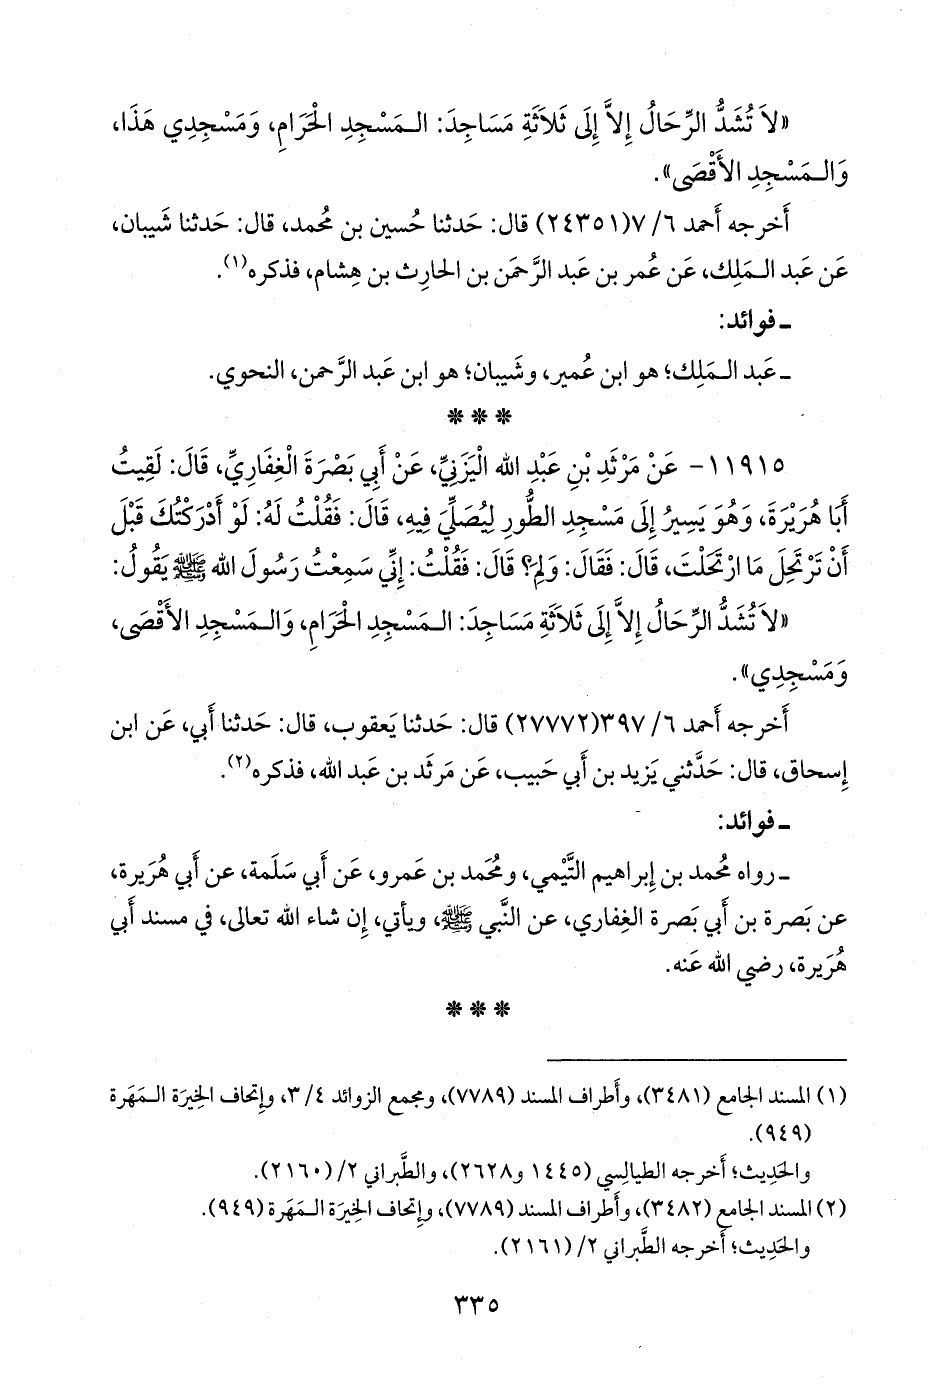 «لاَ تُشَدُّ الرِّحَالُ إِلاَّ إِلَى ثَلاَثَةِ مَسَاجِدَ: الـمَسْجِدِ الْحَرَامِ، وَمَسْجِدِي هَذَا،
وَالـمَسْجِدِ الأَقْصَى».
أَخرجه أَحمد ٦/ ٧(٢٤٣٥١) قال: حَدثنا حُسين بن مُحمد، قال: حَدثنا شَيبان،
عَن عَبد الـمَلِك، عَن عُمر بن عَبد الرَّحمَن بن الحارِث بن هِشام، فذكره(١).
ـ فوائد:
ـ عَبد الـمَلِك؛ هو ابن عُمير، وشَيبان؛ هو ابن عَبد الرَّحمن، النحوي.
* * *
١١٩١٥- عَنْ مَرْثَدِ بْنِ عَبْدِ الله الْيَزَنِيِّ، عَنْ أَبِي بَصْرَةَ الْغِفَارِيِّ، قَالَ: لَقِيتُ
أَبَا هُرَيْرَةَ، وَهُوَ يَسِيرُ إِلَى مَسْجِدِ الطُّورِ لِيُصَلِّيَ فِيهِ، قَالَ: فَقُلْتُ لَهُ: لَوْ أَدْرَكْتُكَ قَبْلَ
أَنْ تَرْتَحِلَ مَا ارْتَحَلْتَ، قَالَ: فَقَالَ: وَلِمَ؟ قَالَ: فَقُلْتُ: إِنِّي سَمِعْتُ رَسُولَ الله ﷺ يَقُولُ:
«لاَ تُشَدُّ الرِّحَالُ إِلاَّ إِلَى ثَلاَثَةِ مَسَاجِدَ: الـمَسْجِدِ الْحَرَامِ، وَالـمَسْجِدِ الأَقْصَى،
وَمَسْجِدِي».
أَخرجه أَحمد ٦/ ٣٩٧(٢٧٧٧٢) قال: حَدثنا يَعقوب، قال: حَدثنا أَبي، عَن ابن
إِسحاق، قال: حَدَّثني يَزيد بن أَبي حَبيب، عَن مَرثَد بن عَبد الله، فذكره(٢).
ـ فوائد:
ـ رواه مُحمد بن إِبراهيم التَّيْمي، ومُحَمد بن عَمرو، عَن أَبي سَلَمة، عن أَبي هُرَيرة،
عن بَصرة بن أَبي بَصرة الغِفاري، عن النَّبي ﷺ، ويأتي، إِن شاء الله تعالى، في مسند أَبي
هُرَيرة، رضي الله عَنه.
* * *
(١) المسند الجامع (٣٤٨١)، وأَطراف المسند (٧٧٨٩)، ومجمع الزوائد ٤/ ٣، وإِتحاف الخِيرَة الـمَهَرة
(٩٤٩).
والحَدِيث؛ أَخرجه الطيالِسي (١٤٤٥ و٢٦٢٨)، والطَّبراني ٢/ (٢١٦٠).
(٢) المسند الجامع (٣٤٨٢)، وأَطراف المسند (٧٧٨٩)، وإِتحاف الخِيرَة الـمَهَرة (٩٤٩).
والحَدِيث؛ أَخرجه الطَّبراني ٢/ (٢١٦١).
٣٣٥